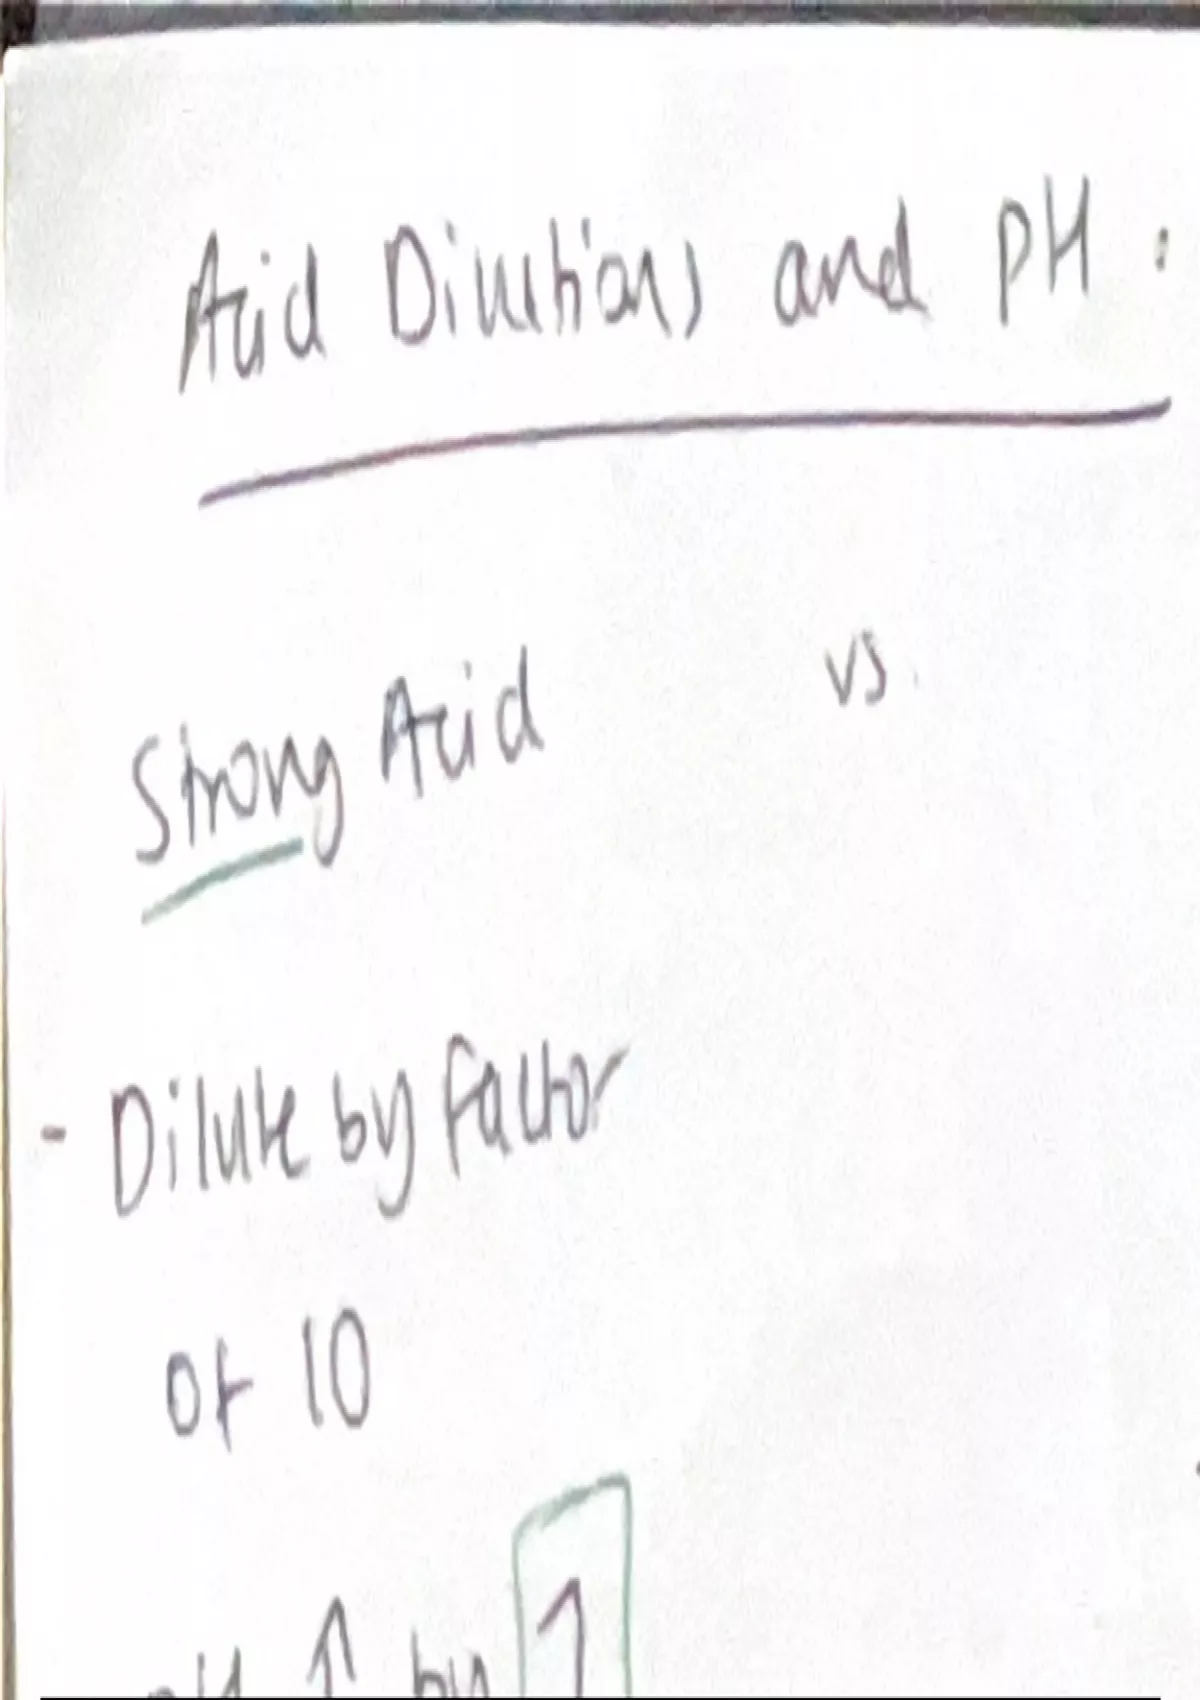 Acid Dilutions and pH:
Strong Acid vs.
- Dilute by factor
of 10
pH ↑ by 1